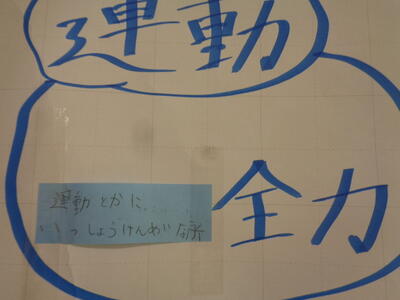 運動
全力
運動とかに、
いっしょうけんめいな所